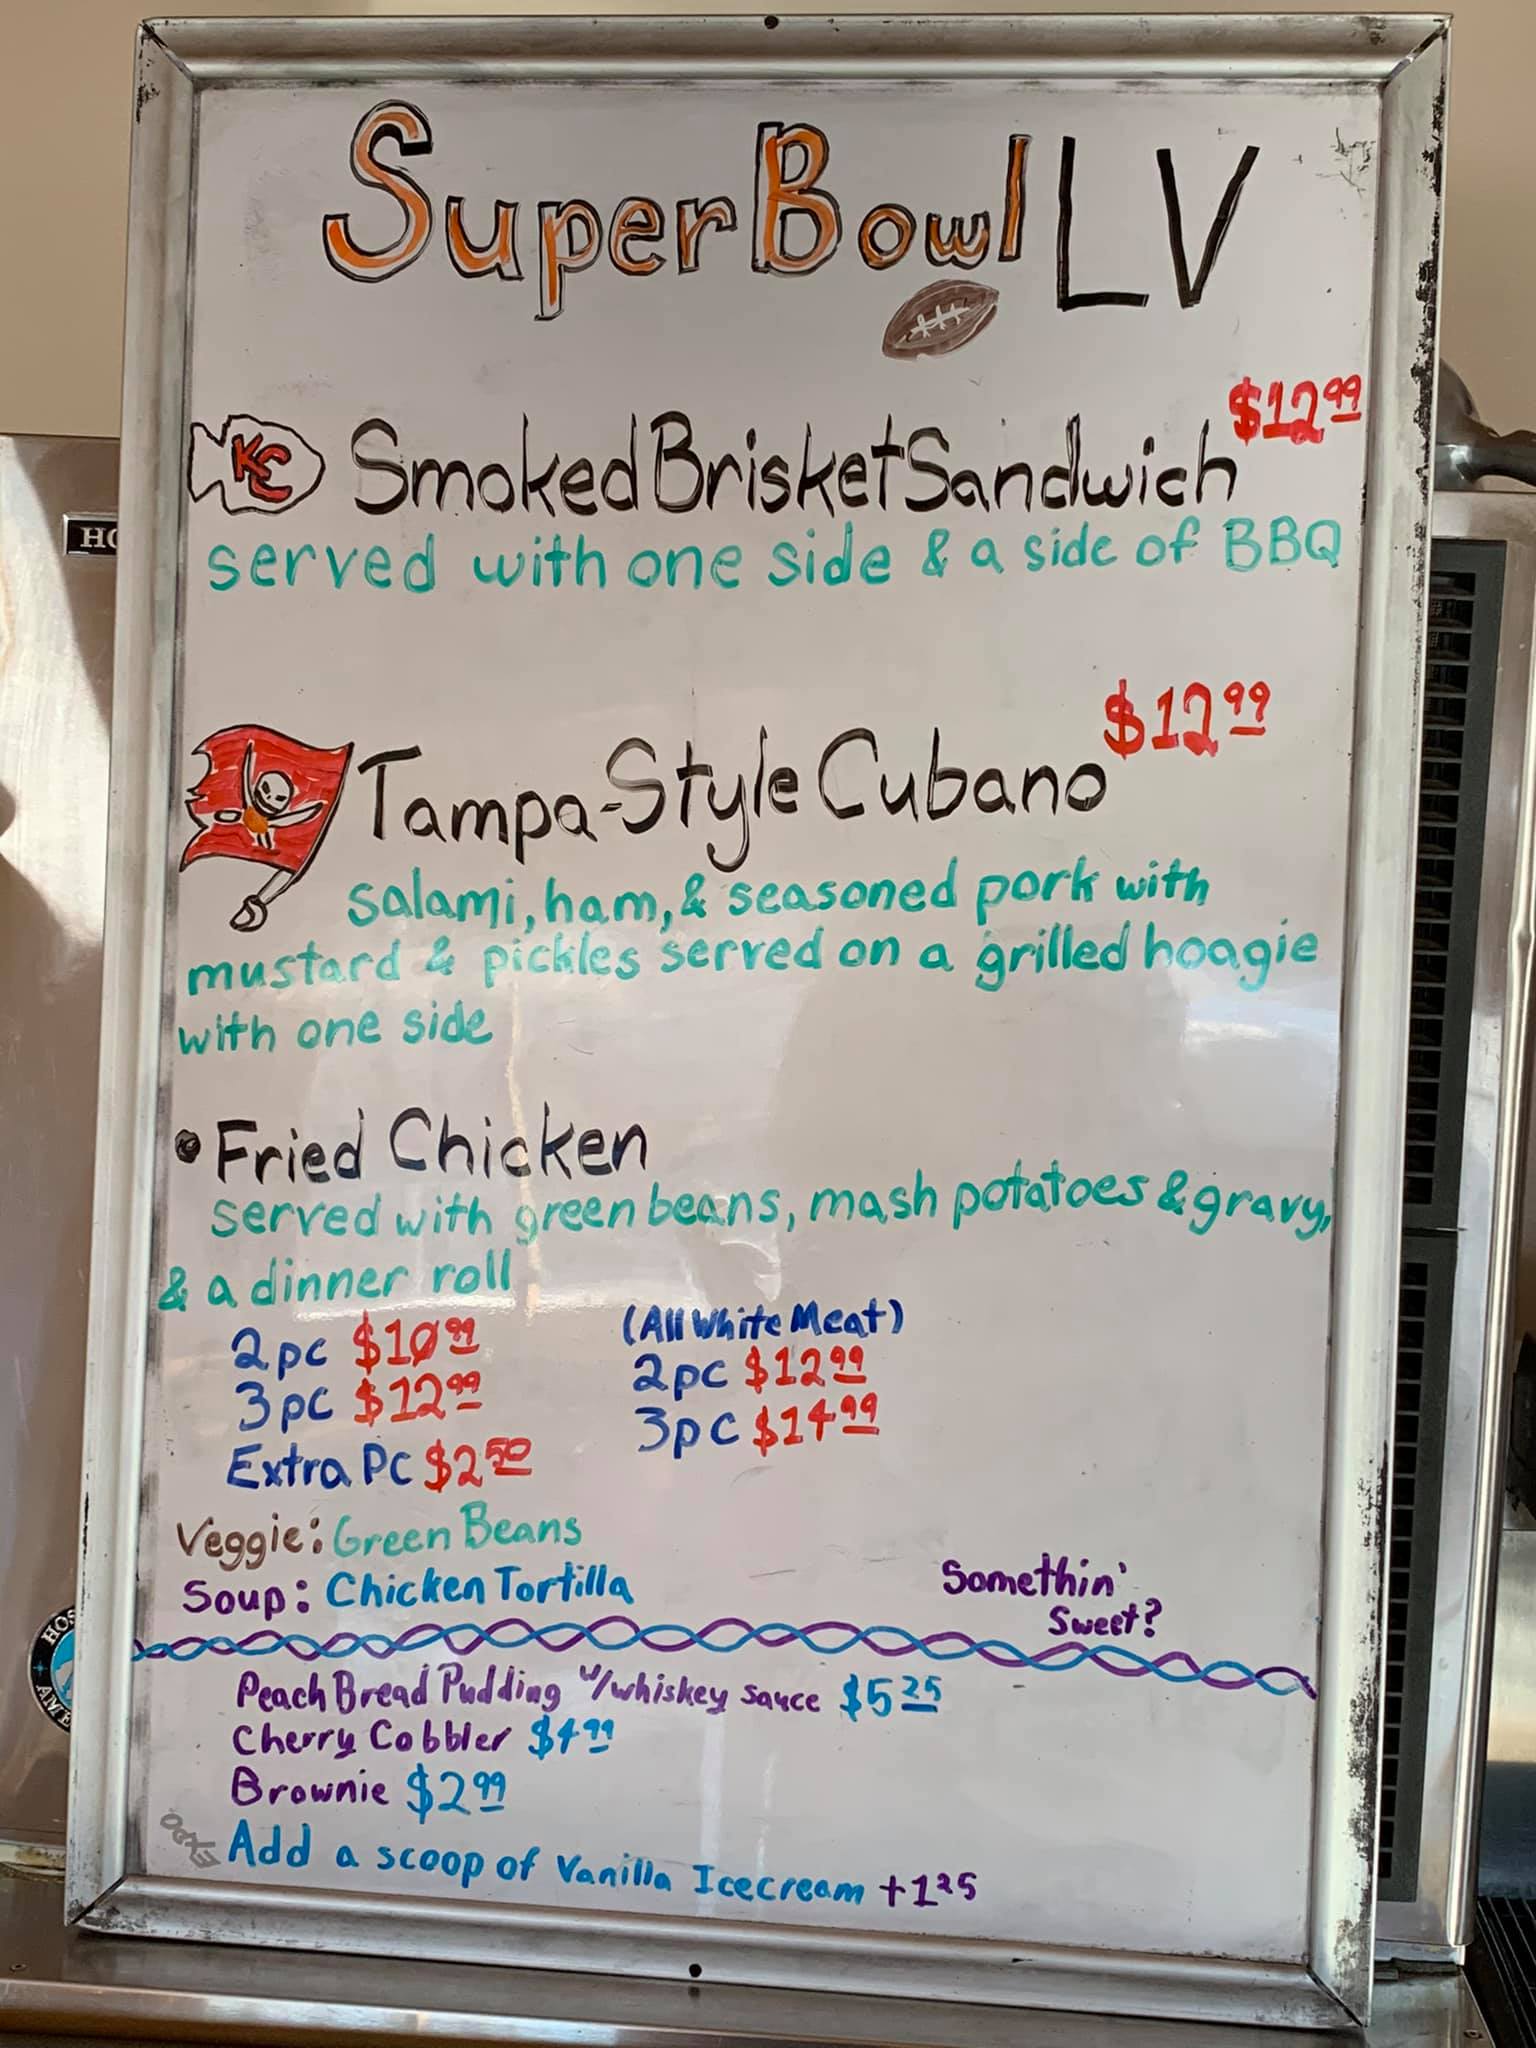 Super Bowl LV
$12.99
KC Smoked Brisket Sandwich
served with one side & a side of BBQ
$12.99
Tampa-Style Cubano
salami, ham, & seasoned pork with
mustard & pickles served on a grilled hoagie
with one side
• Fried Chicken
served with green beans, mash potatoes & gravy,
& a dinner roll
2pc $10.99
3pc $12.99
Extra Pc $2.50
(All White Meat)
2pc $12.99
3pc $14.99
Veggie: Green Beans
Soup: Chicken Tortilla
Somethin'
Sweet?
Peach Bread Pudding w/whiskey sauce $5.25
Cherry Cobbler $4.99
Brownie $2.99
Add a scoop of Vanilla Icecream +1.25
EXPO
HO
HOS
AME